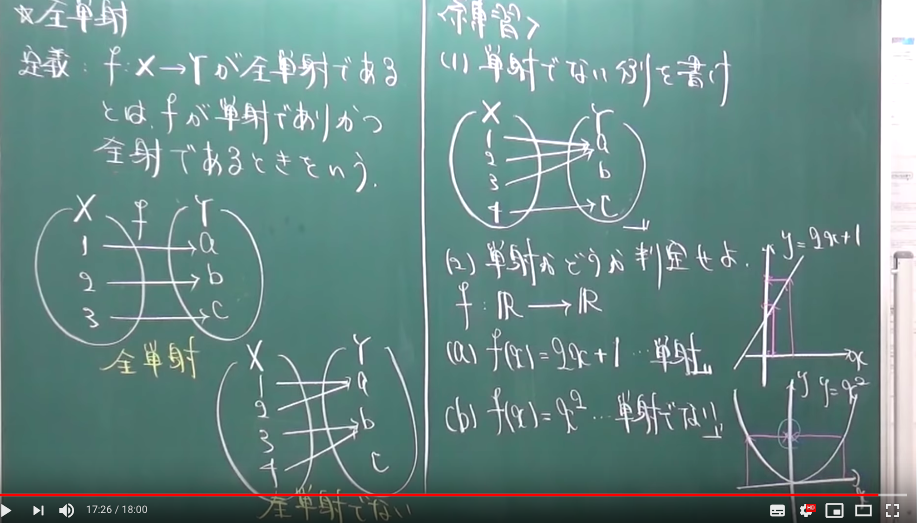 ☆全単射
定義: f:X→Yが全単射である
とは、fが単射でありかつ
全射であるときをいう.
X f Y
1 a
2 b
3 c
全単射
X Y
1 a
2 b
3 c
4
全単射でない
練習>
(1) 単射でない例を書け
X Y
1 a
2 b
3 c
4
(2) 単射かどうか判定せよ.
f:ℝ→ℝ
(a) f(x)=2x+1 …単射
y=2x+1
x
(b) f(x)=x² …単射でない
y y=x²
x
17:26 / 18:00